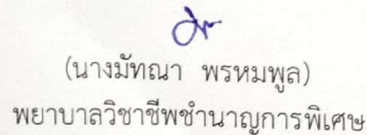 (นางมัทณา พรหมพูล)
พยาบาลวิชาชีพชำนาญการพิเศษ